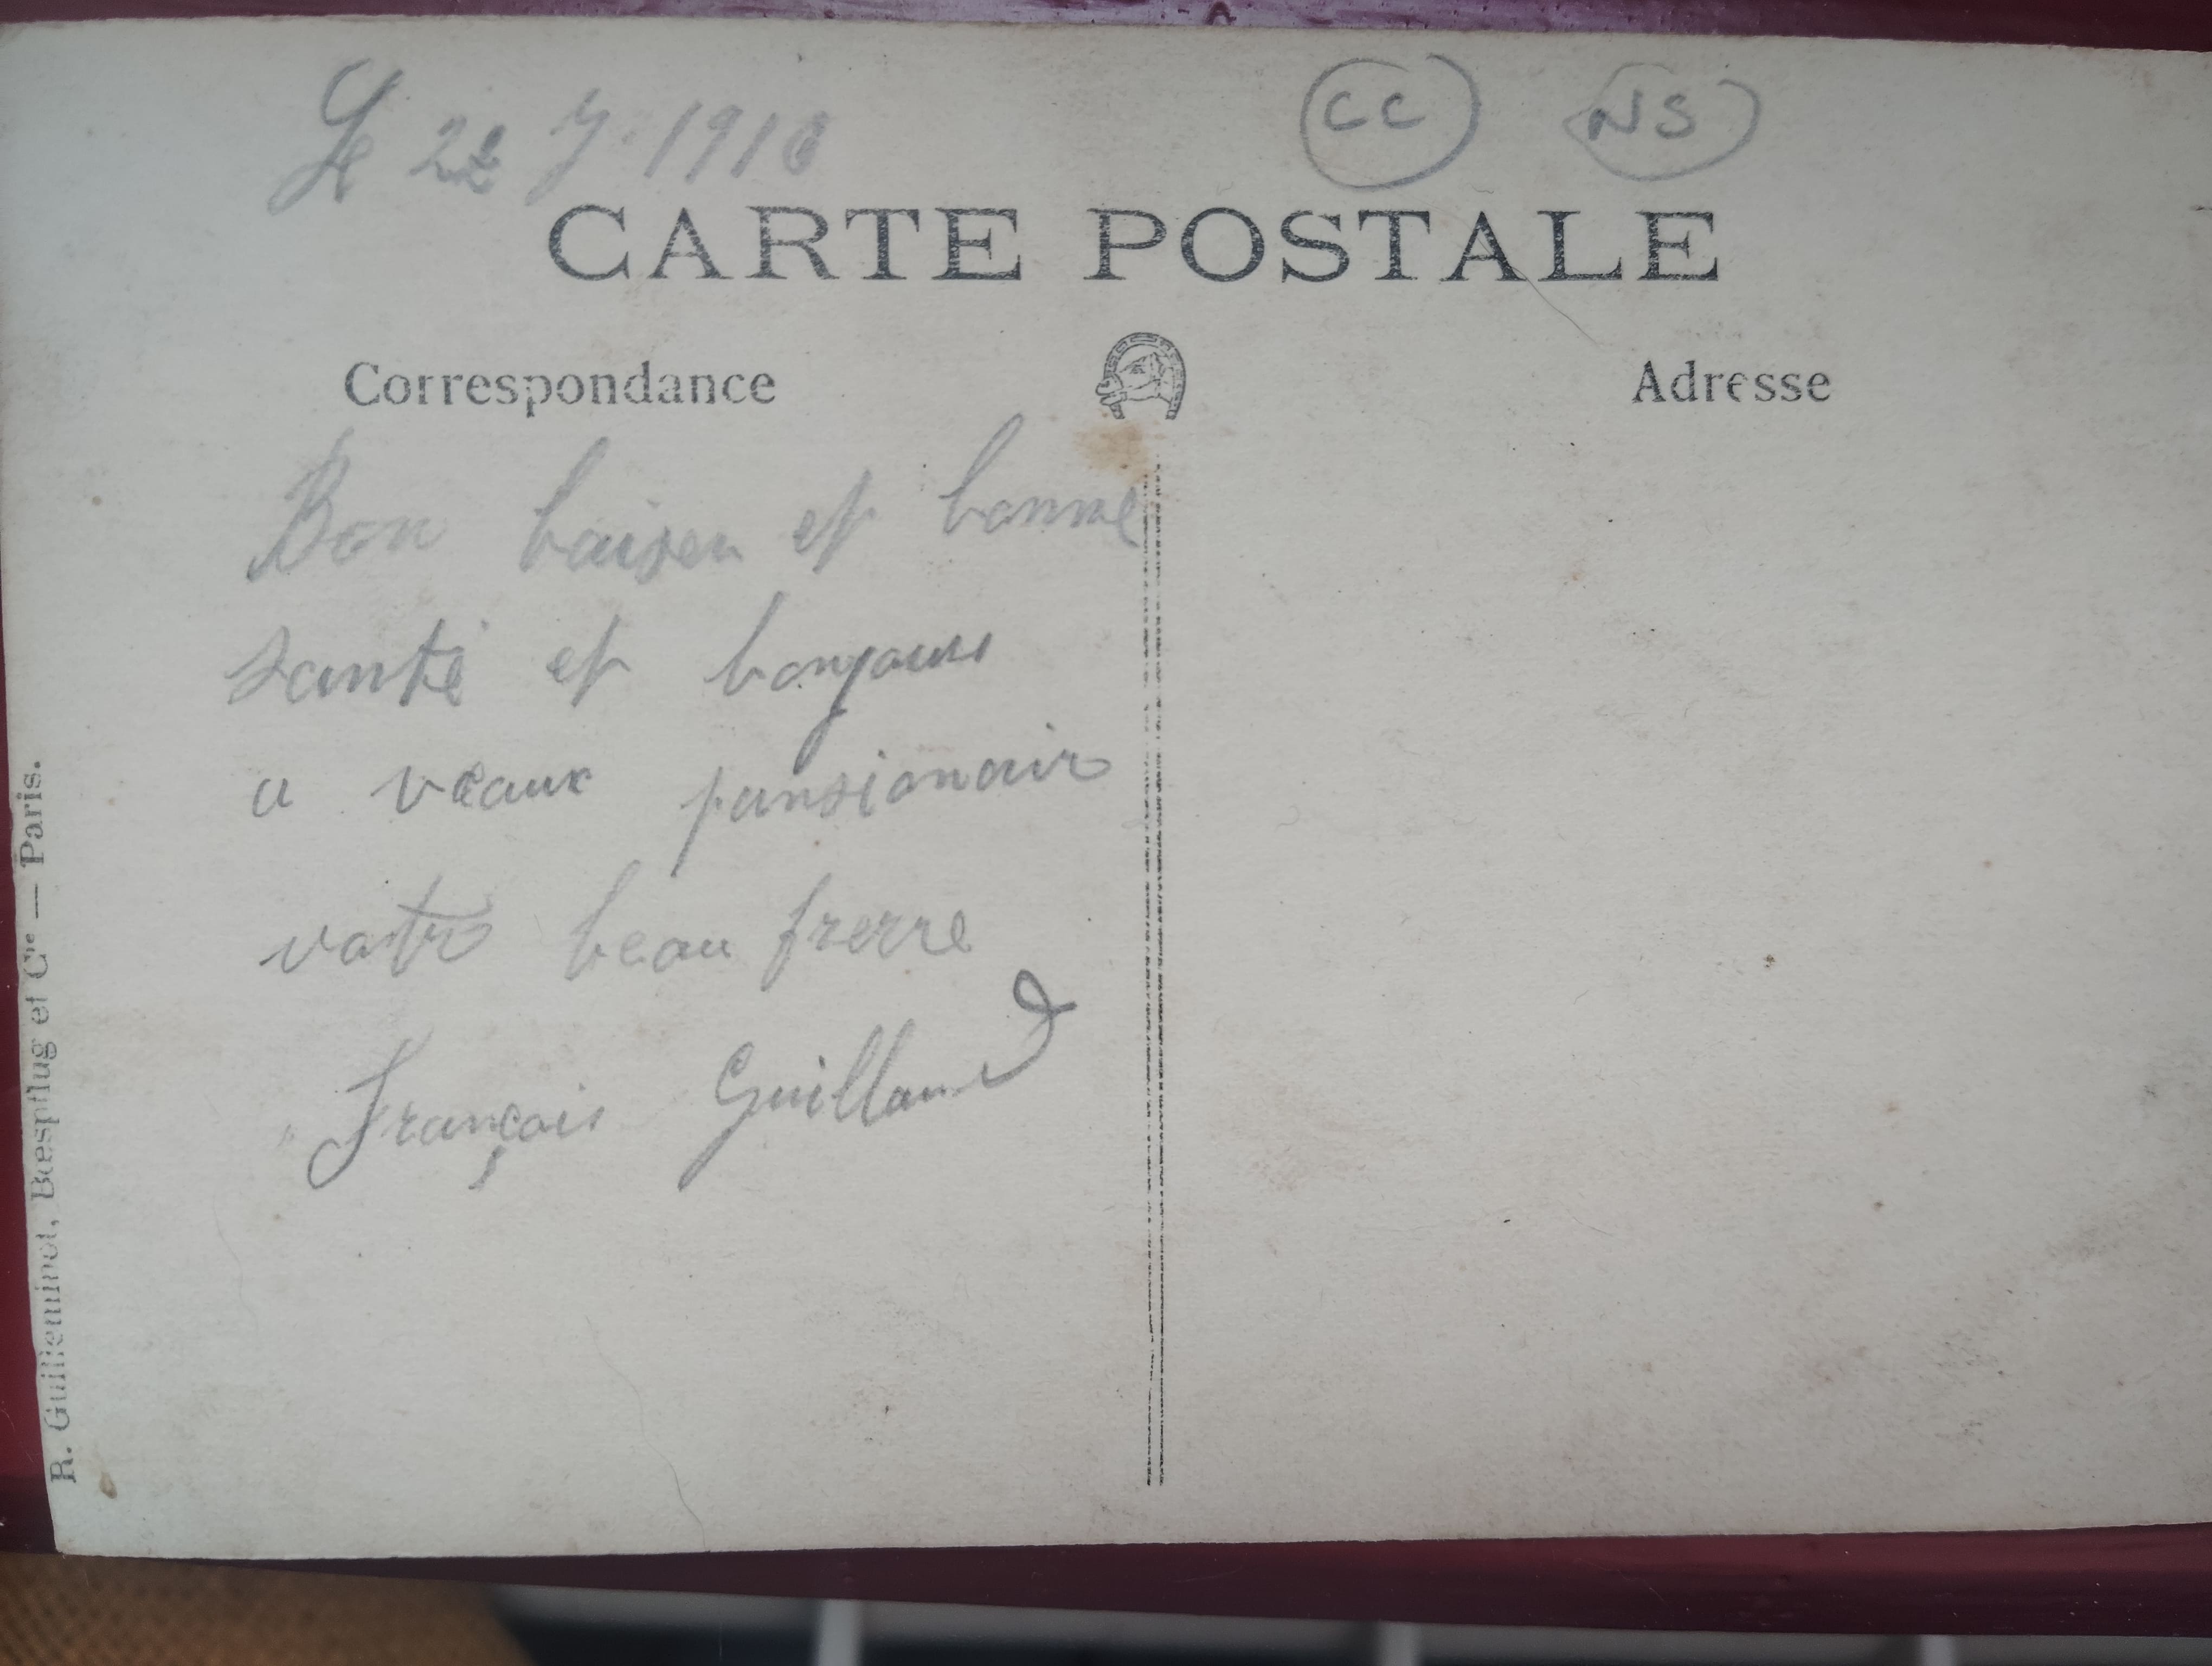 Le 22 J. 1910
CC NS
CARTE POSTALE
Correspondance
Adresse
Bon baiser et bonne
santé et bonjours
a veaux pansionair
votre beau frerre
François Guillaume
R. Guilleminot, Bœspflug et Cie — Paris.